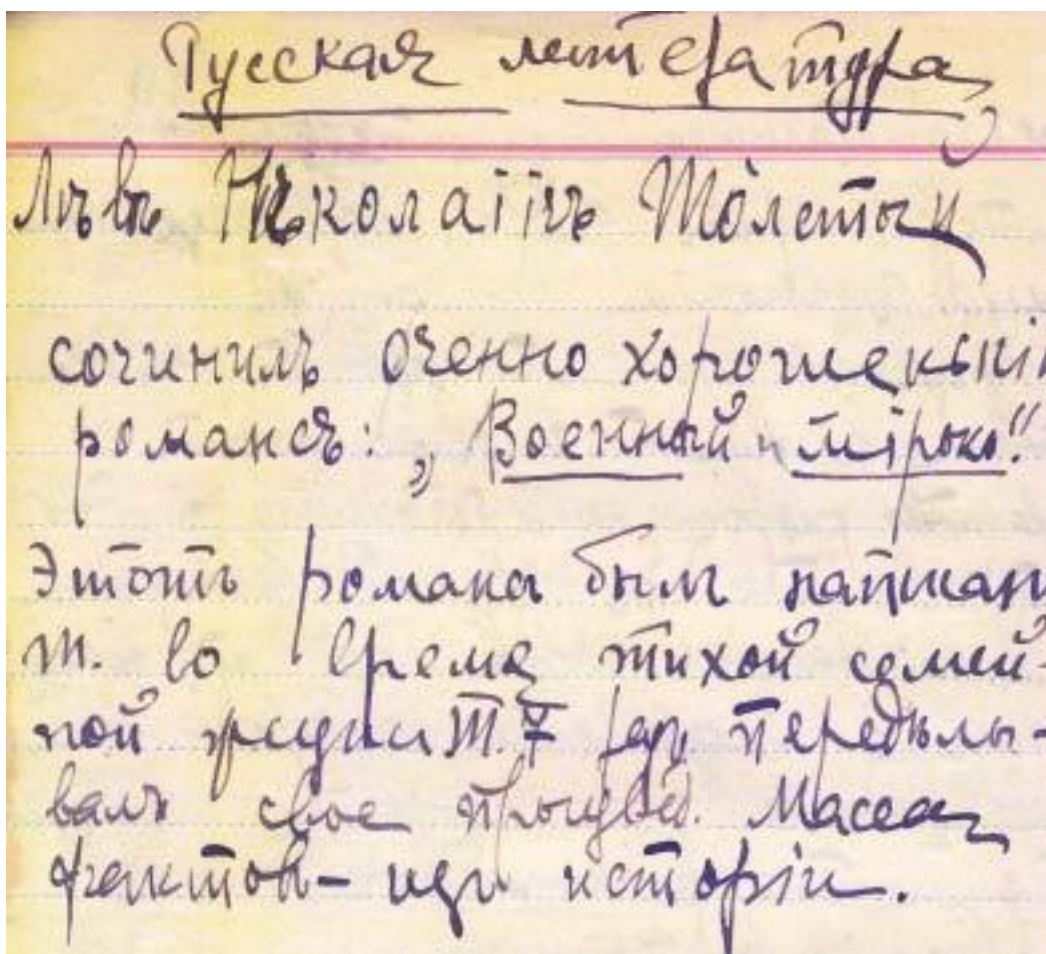 Русская литература
Лъвъ Нъколаiiчъ Толстый
сочинилъ оченно хорошенькнiй
романсъ: „Военный мiрько!"
Этотъ романъ былъ написан
Т. во время тихой семей-
ной жизни Т. 7 раз передълы-
валъ свое произвед. Масса
фактов- изъ исторiи.